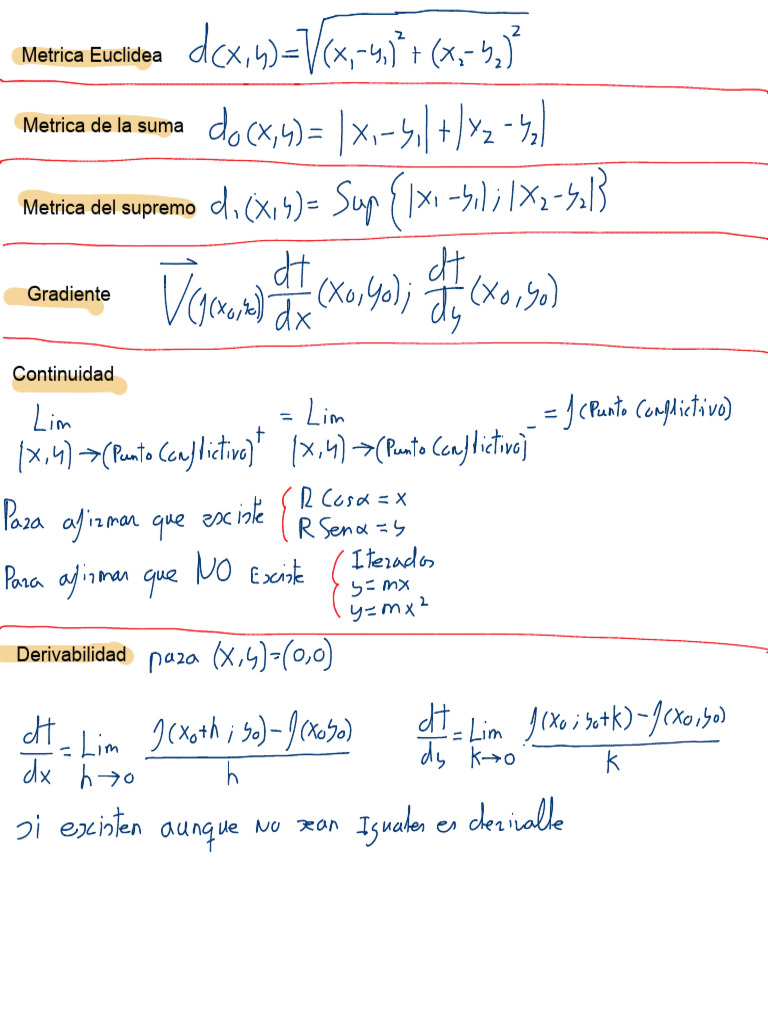 Metrica Euclidea d(x,y)=√(x₁-y₁)²+(x₂-y₂)²
Metrica de la suma d₀(x,y)=|x₁-y₁|+|x₂-y₂|
Metrica del supremo d₁(x,y)= Sup{|x₁-y₁|;|x₂-y₂|}
Gradiente ∇(f(x₀,y₀)) df/dx (x₀,y₀); df/dy (x₀,y₀)
Continuidad
Lim (x,y)→(Punto Conflictivo)⁺ = Lim (x,y)→(Punto Conflictivo)⁻ = f(Punto Conflictivo)
Para afirmar que existe { R Cosα = x
R Senα = y
Para afirmar que NO Existe { Iterados
y=mx
y=mx²
Derivabilidad para (x,y)=(0,0)
df/dx = Lim h→0 f(x₀+h;y₀)-f(x₀y₀)/h df/dy = Lim k→0 f(x₀;y₀+k)-f(x₀,y₀)/k
si existen aunque NO sean Iguales es derivable